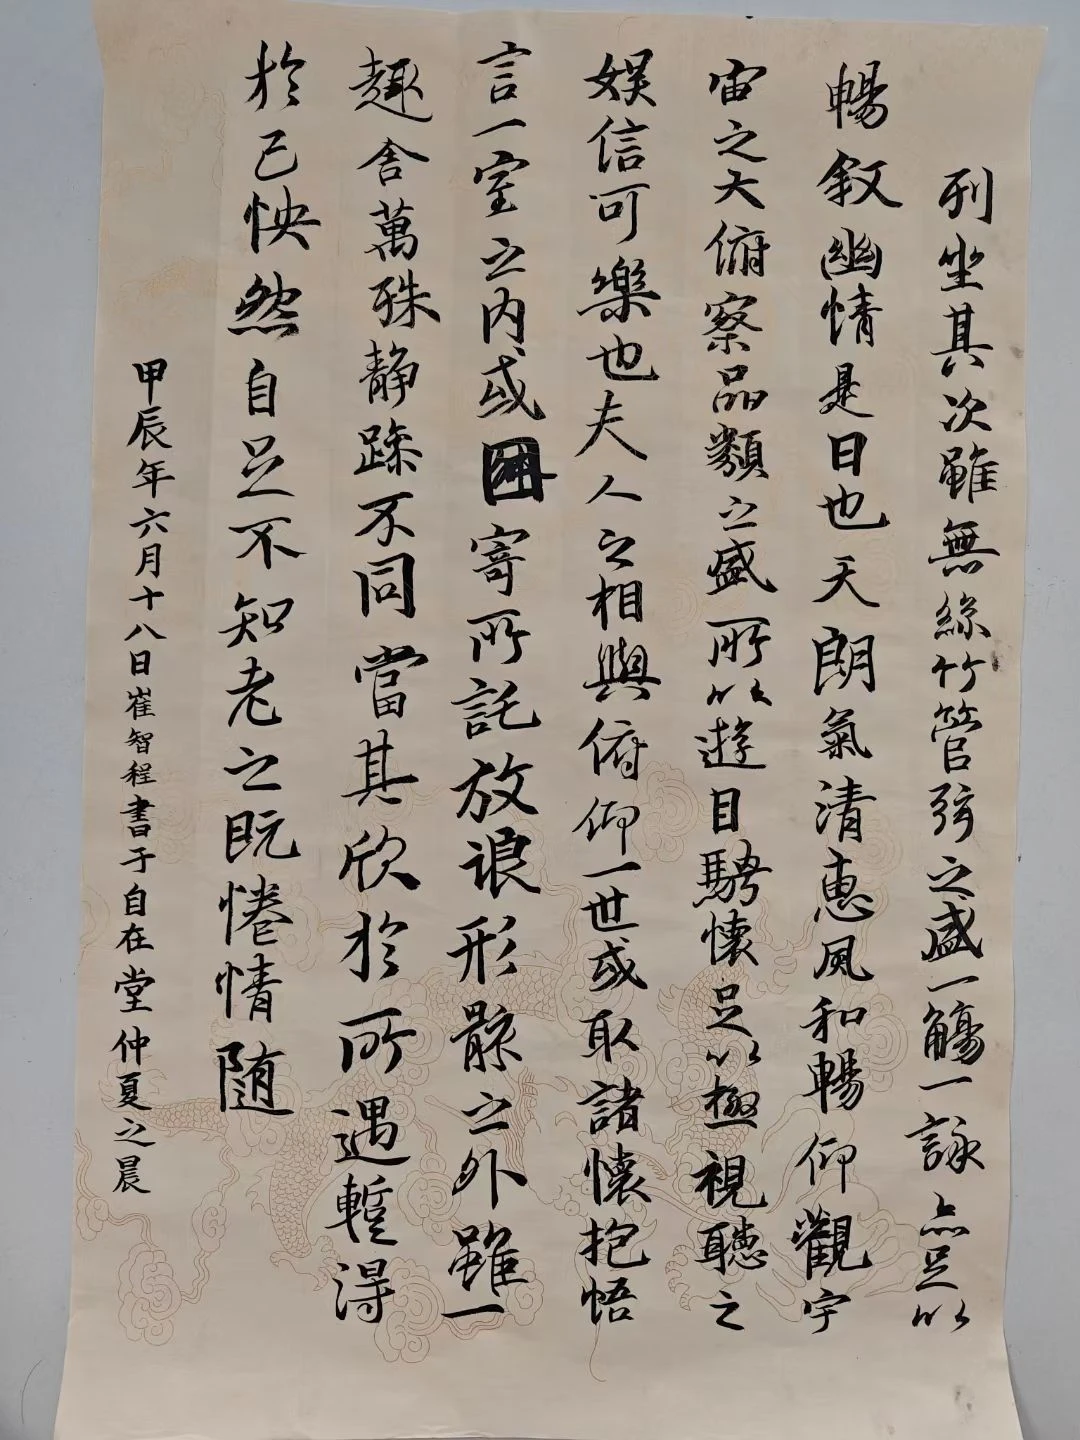 列坐其次雖無絲竹管弦之盛一觴一詠亦足以
暢敘幽情是日也天朗氣清惠風和暢仰觀宇
宙之大俯察品類之盛所以遊目騁懷足以極視聽之
娱信可樂也夫人之相與俯仰一世或取諸懷抱悟
言一室之内或因寄所託放浪形骸之外雖一
趣舍萬殊静躁不同當其欣於所遇暫得
於己怏然自足不知老之既惓情随
甲辰年六月十八日崔智程書于自在堂仲夏之晨